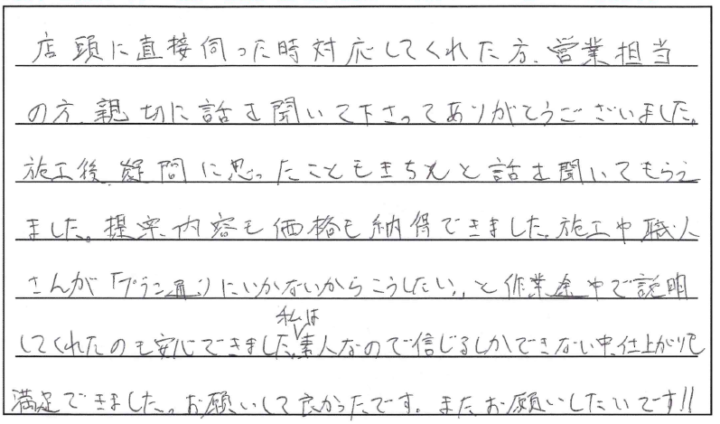 店頭に直接伺った時対応してくれた方、営業担当
の方、親切に話を聞いて下さってありがとうございました。
施工後、疑問に思ったこともきちんと話を聞いてもらえ
ました。提案内容も価格も納得できました。施工中職人
さんが「プラン通りにいかないからこうしたい」と作業途中で説明
してくれたのも安心できました。私は素人なので信じるしかできない中、仕上がりも
満足できました。お願いして良かったです。またお願いしたいです!!